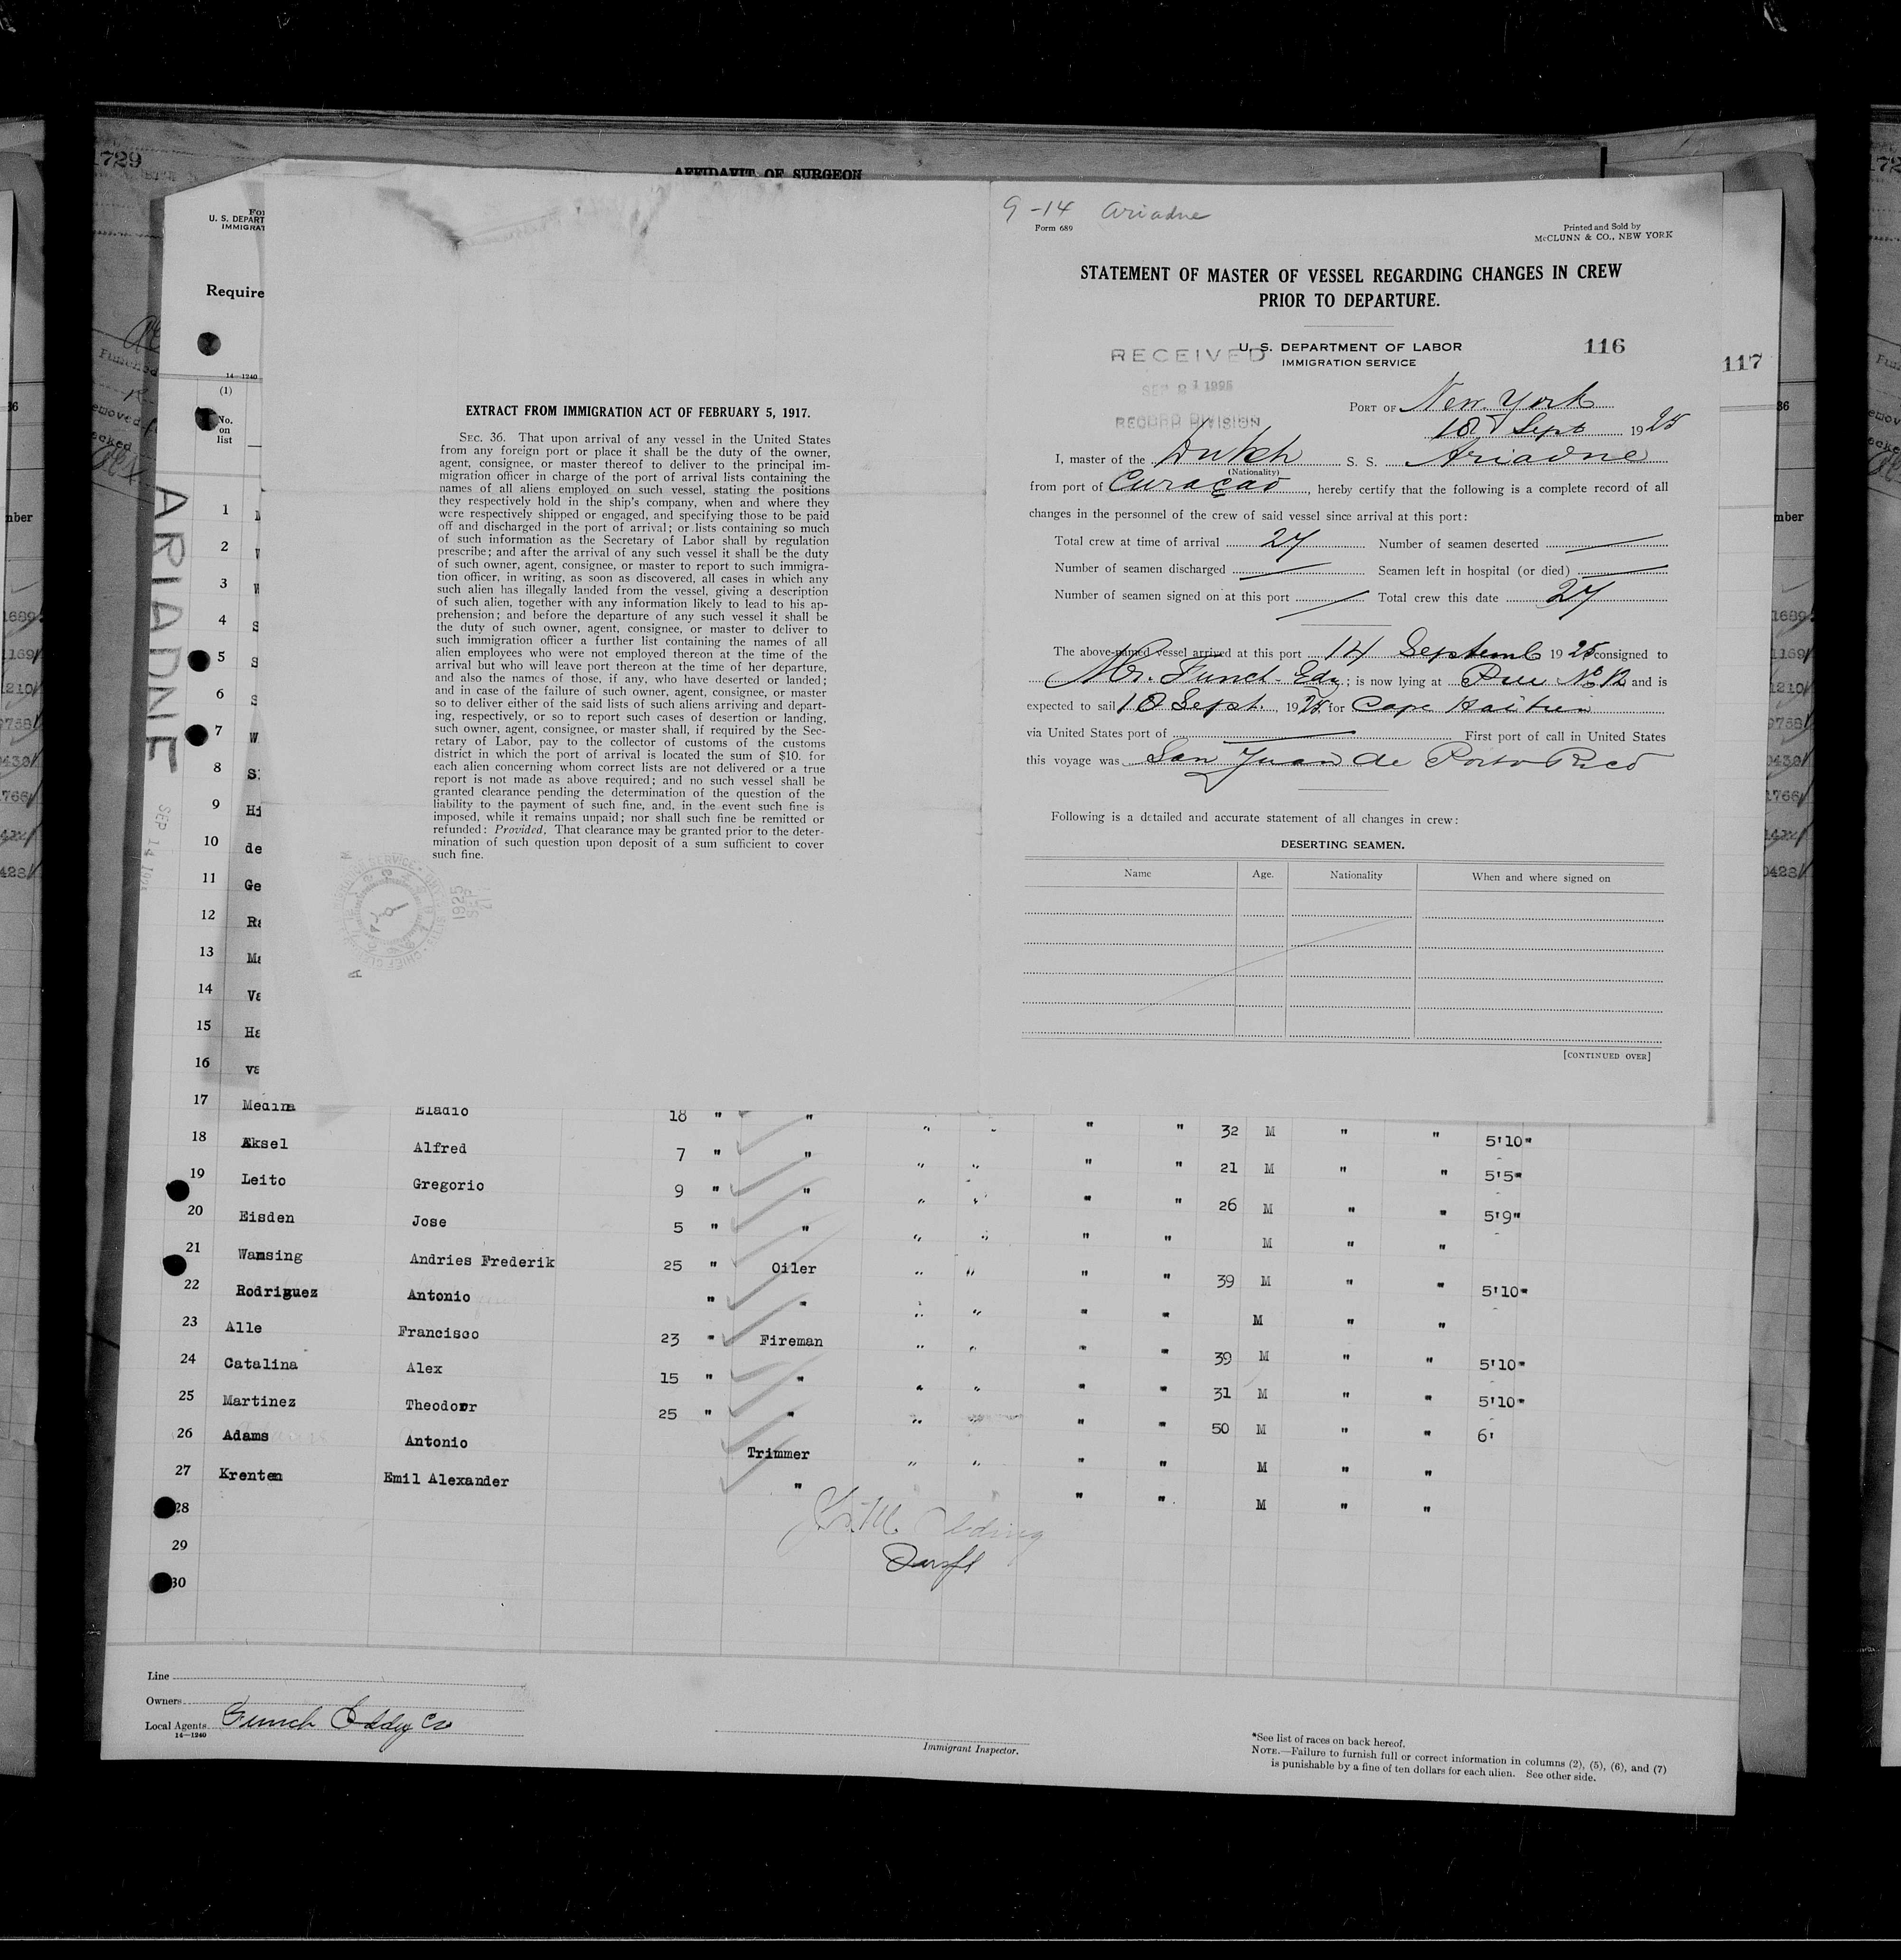 1729
AFFIDAVIT OF SURGEON
U. S. DEPART
IMMIGRAT
Require
14—1240
(1)
No.
on
list
ARIADNE
SEP 14 1925
EXTRACT FROM IMMIGRATION ACT OF FEBRUARY 5, 1917.
SEC. 36. That upon arrival of any vessel in the United States
from any foreign port or place it shall be the duty of the owner,
agent, consignee, or master thereof to deliver to the principal im-
migration officer in charge of the port of arrival lists containing the
names of all aliens employed on such vessel, stating the positions
they respectively hold in the ship's company, when and where they
were respectively shipped or engaged, and specifying those to be paid
off and discharged in the port of arrival; or lists containing so much
of such information as the Secretary of Labor shall by regulation
prescribe; and after the arrival of any such vessel it shall be the duty
of such owner, agent, consignee, or master to report to such immigra-
tion officer, in writing, as soon as discovered, all cases in which any
such alien has illegally landed from the vessel, giving a description
of such alien, together with any information likely to lead to his ap-
prehension; and before the departure of any such vessel it shall be
the duty of such owner, agent, consignee, or master to deliver to
such immigration officer a further list containing the names of all
alien employees who were not employed thereon at the time of the
arrival but who will leave port thereon at the time of her departure,
and also the names of those, if any, who have deserted or landed;
and in case of the failure of such owner, agent, consignee, or master
so to deliver either of the said lists of such aliens arriving and depart-
ing, respectively, or so to report such cases of desertion or landing,
such owner, agent, consignee, or master shall, if required by the Sec-
retary of Labor, pay to the collector of customs of the customs
district in which the port of arrival is located the sum of $10. for
each alien concerning whom correct lists are not delivered or a true
report is not made as above required; and no such vessel shall be
granted clearance pending the determination of the question of the
liability to the payment of such fine, and, in the event such fine is
imposed, while it remains unpaid; nor shall such fine be remitted or
refunded: Provided, That clearance may be granted prior to the deter-
mination of such question upon deposit of a sum sufficient to cover
such fine.
9-14 Ariadne
Form 689
Printed and Sold by
McCLUNN & CO., NEW YORK
STATEMENT OF MASTER OF VESSEL REGARDING CHANGES IN CREW
PRIOR TO DEPARTURE.
U. S. DEPARTMENT OF LABOR
IMMIGRATION SERVICE
RECEIVED
SEP 21 1925
RECORD DIVISION
116
117
PORT OF New York
18 Sept 1925
I, master of the Dutch S. S. Ariadne
(Nationality)
from port of Curaçao, hereby certify that the following is a complete record of all
changes in the personnel of the crew of said vessel since arrival at this port:
Total crew at time of arrival 27 Number of seamen deserted —
Number of seamen discharged — Seamen left in hospital (or died) —
Number of seamen signed on at this port — Total crew this date 27
The above-named vessel arrived at this port 14 Septemb 1925 consigned to
Mr. Funch-Edy; is now lying at Pier No 12 and is
expected to sail 18 Sept., 1925 for Cape Haitien
via United States port of — First port of call in United States
this voyage was San Juan de Porto Rico
Following is a detailed and accurate statement of all changes in crew:
DESERTING SEAMEN.
Name Age. Nationality When and where signed on
[CONTINUED OVER]
1
2
3
4 S
5 S
6 S
7 W
8 S
9 Hi
10 de
11 Ge
12 Ra
13 Ma
14 Va
15 Ha
16 va
17 Medina Eladio 18 " " " " " " 32 M " " 5'10"
18 Aksel Alfred 7 " " " " " " 21 M " " 5'5"
19 Leito Gregorio 9 " " " " " " 26 M " " 5'9"
20 Eisden Jose 5 " " " " " " M " "
21 Wamsing Andries Frederik 25 " Oiler " " " " 39 M " " 5'10"
22 Rodriguez Antonio " " " " " " M " "
23 Alle Francisco 23 " Fireman " " " " 39 M " " 5'10"
24 Catalina Alex 15 " " " " " " 31 M " " 5'10"
25 Martinez Theodorr 25 " " " " " 50 M " " 6'
26 Adams Antonio Trimmer " " " " M " "
27 Krenten Emil Alexander " " " M " "
28
29
30
Line
Owners
Local Agents Funch Eddy Co
14—1240
Immigrant Inspector.
*See list of races on back hereof.
NOTE.—Failure to furnish full or correct information in columns (2), (5), (6), and (7)
is punishable by a fine of ten dollars for each alien. See other side.